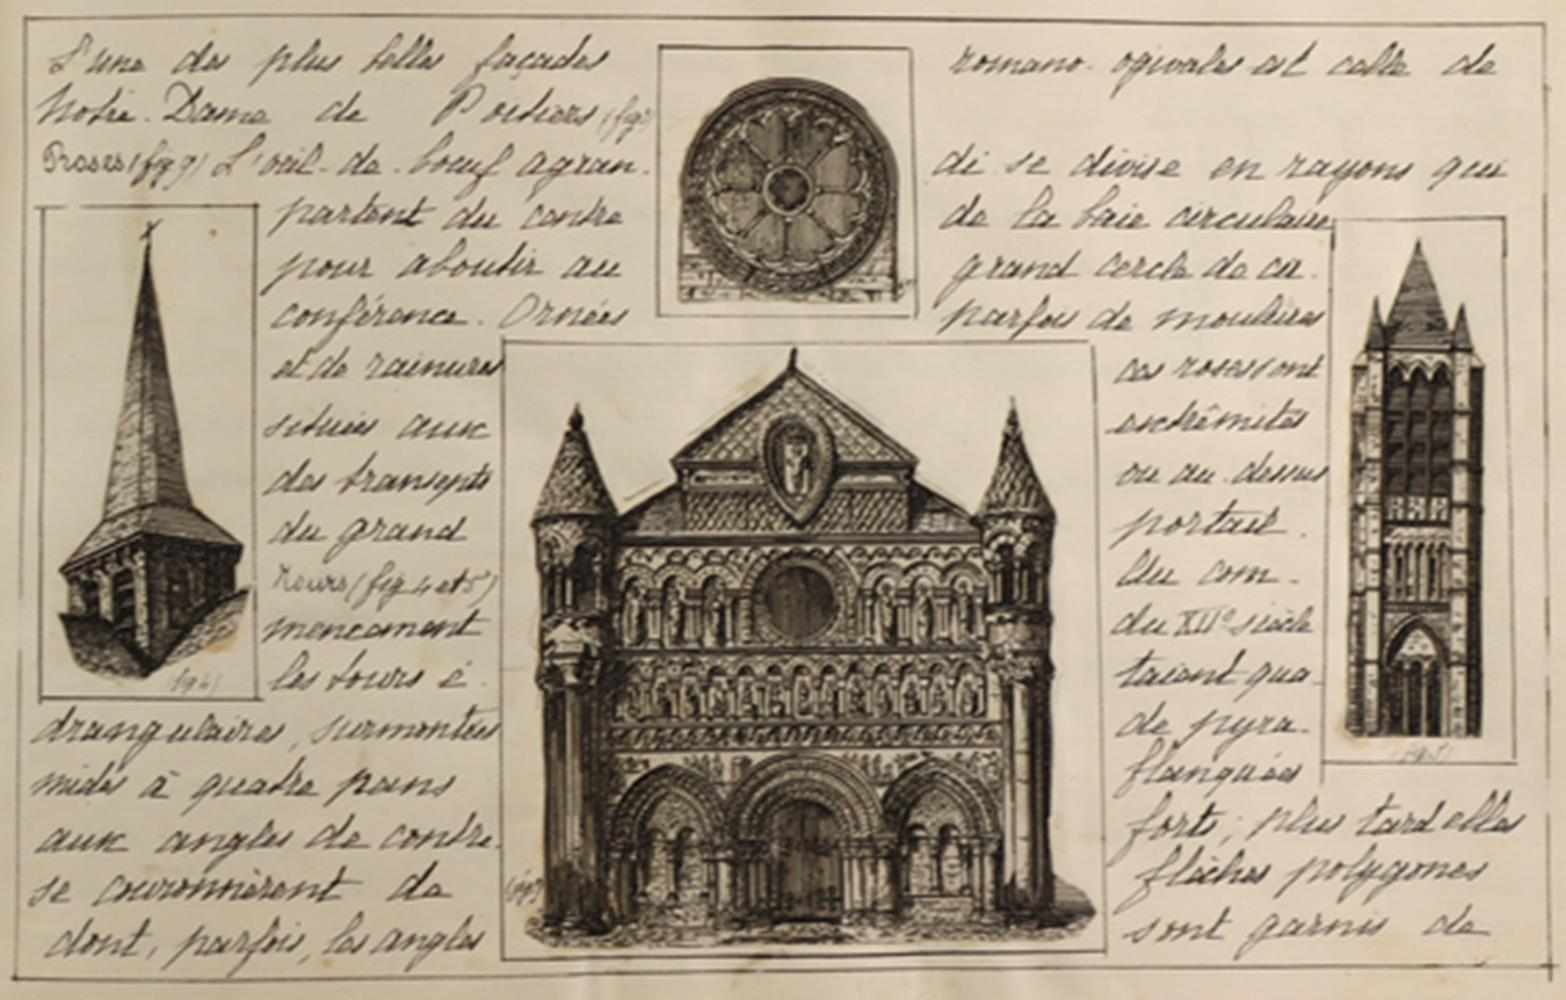 L'une des plus belles façades romano-ogivales est celle de
Notre-Dame de Poitiers (fig
Roses (fig 9) L'œil-de-bœuf agran-di se divise en rayons qui
partent du centre de la baie circulaire
pour aboutir au grand cercle de cir-
conférence. Ornées parfois de moulures
et de rainures ces roses sont
situées aux extrêmités
des transepts ou au-dessus
du grand portail.
Tours (fig 4 et 5) Au com-
mencement du XIIe siècle
les tours é-taient qua-
drangulaires, surmontées de pyra-
mides à quatre pans flanquées
aux angles de contre-forts; plus tard elles
se couronnèrent de flèches polygones
dont, parfois, les angles sont garnis de